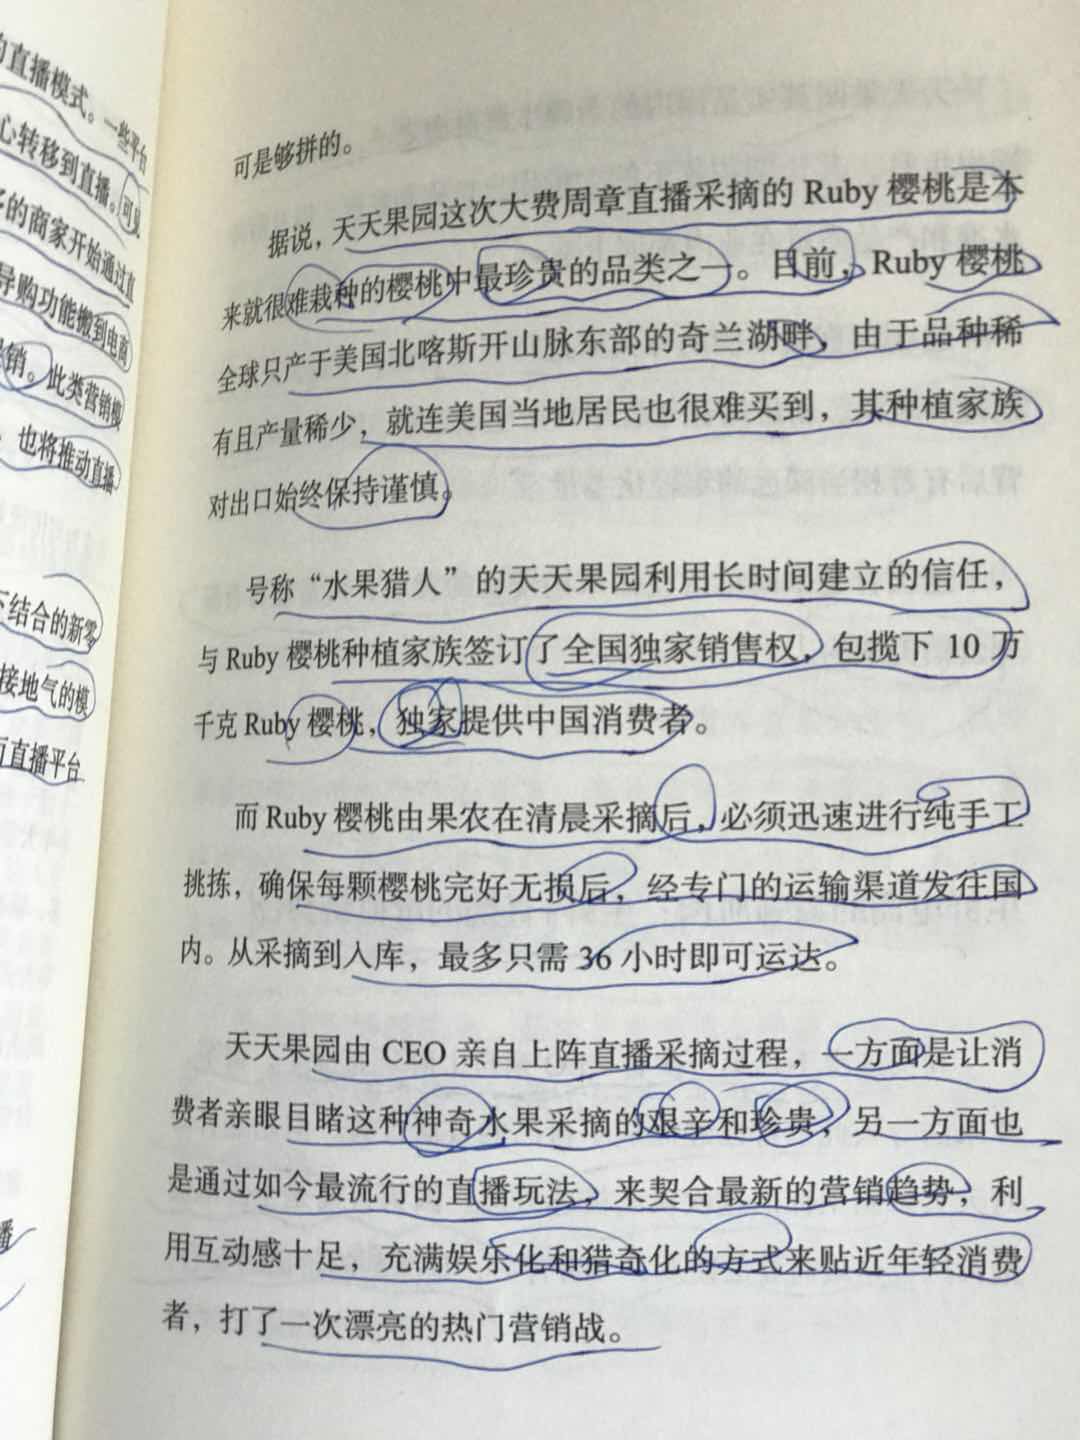 的直播模式。一些平台
心转移到直播。可见
的商家开始通过直
导购功能搬到电商
销。此类营销模
也将推动直播
下结合的新零
接地气的模
直播平台
播
可是够拼的。
据说，天天果园这次大费周章直播采摘的 Ruby 樱桃是本
来就很难栽种的樱桃中最珍贵的品类之一。目前，Ruby 樱桃
全球只产于美国北喀斯开山脉东部的奇兰湖畔，由于品种稀
有且产量稀少，就连美国当地居民也很难买到，其种植家族
对出口始终保持谨慎。
号称“水果猎人”的天天果园利用长时间建立的信任，
与 Ruby 樱桃种植家族签订了全国独家销售权，包揽下 10 万
千克 Ruby 樱桃，独家提供中国消费者。
而 Ruby 樱桃由果农在清晨采摘后，必须迅速进行纯手工
挑拣，确保每颗樱桃完好无损后，经专门的运输渠道发往国
内。从采摘到入库，最多只需 36 小时即可运达。
天天果园由 CEO 亲自上阵直播采摘过程，一方面是让消
费者亲眼目睹这种神奇水果采摘的艰辛和珍贵，另一方面也
是通过如今最流行的直播玩法，来契合最新的营销趋势，利
用互动感十足，充满娱乐化和猎奇化的方式来贴近年轻消费
者，打了一次漂亮的热门营销战。